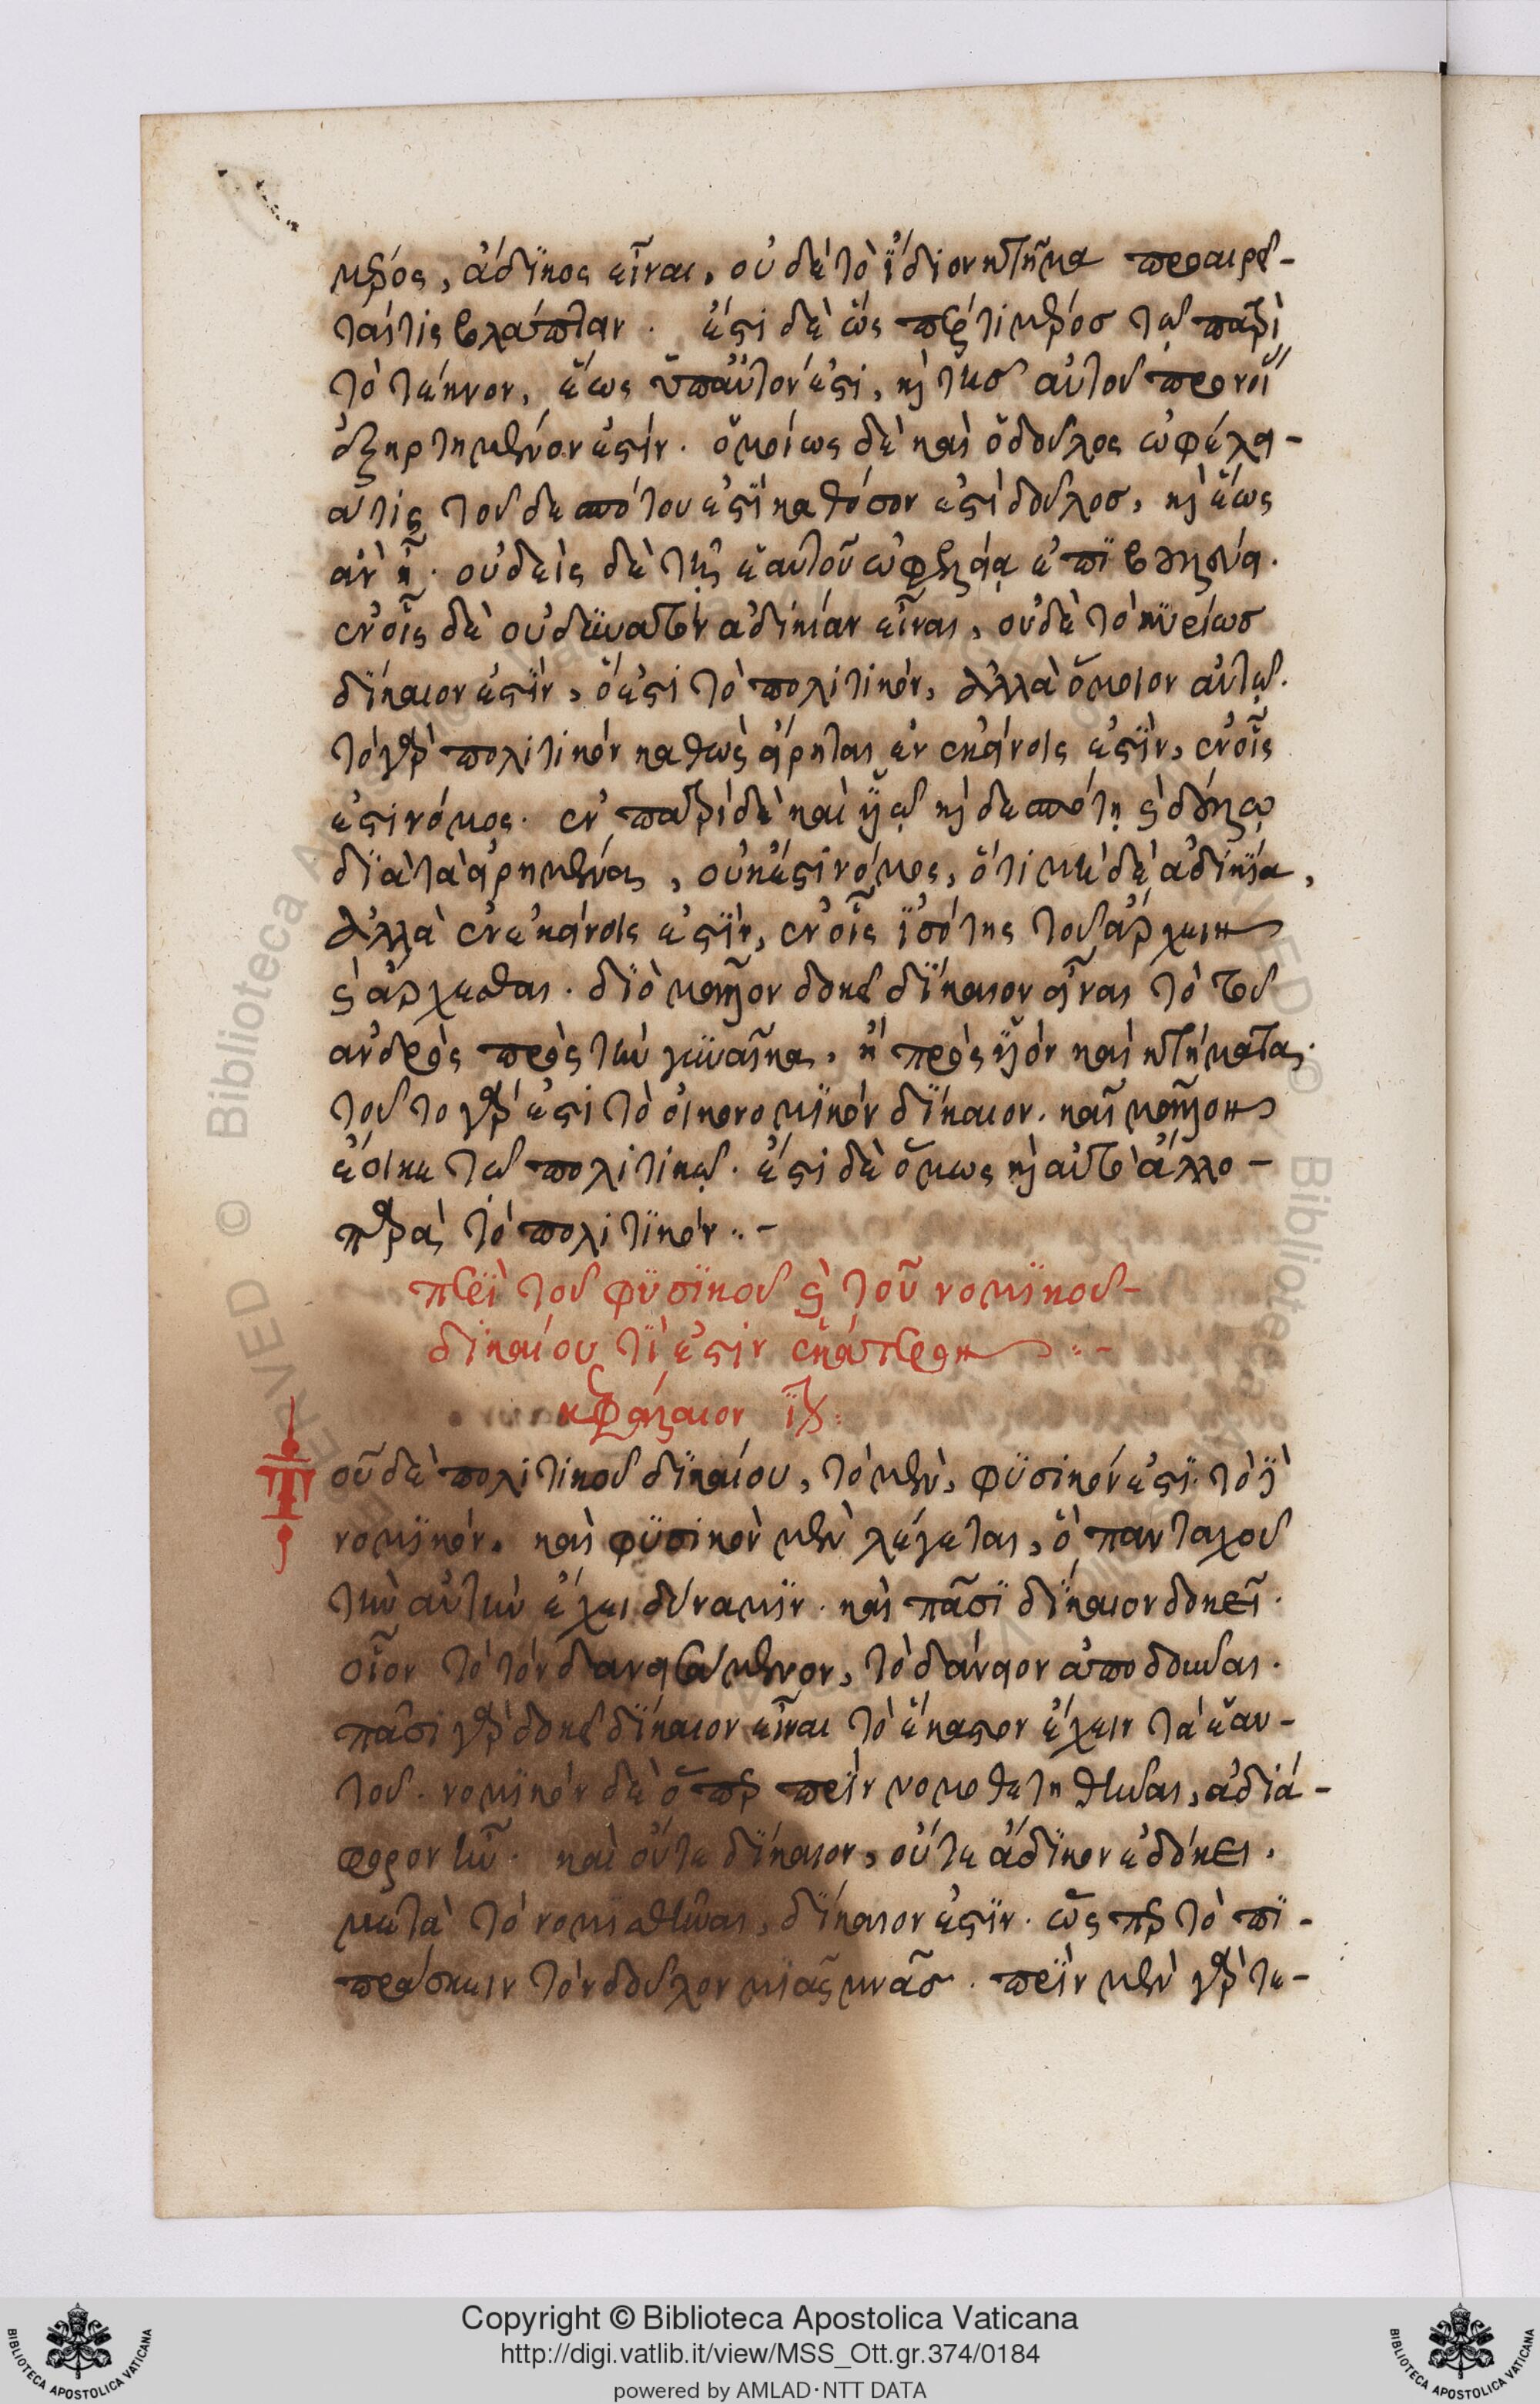 μέρος, ἀδίκος εἶναι, οὐ δὲ τὸ ἴδιον κτῆμα προαιρεῖ-
ταί τις βλάπτειν. ἔστι δὲ ὥς περ τι μέρος τῷ πατρὶ
τὸ τέκνον, ἕως ὑπ αὐτὸν ἐστι, καὶ τῆς αὐτοῦ προνοί
ἐξηρτημένον ἐστίν. ὁμοίως δὲ καὶ ὁ δοῦλος ὠφέλει-
ά τις τοῦ δεσπότου ἐστὶ καθόσον ἐστὶ δοῦλος, καὶ ἕως
ἂν ᾖ. οὐδεὶς δὲ τῇ ἑαυτοῦ ὠφελείᾳ ἐπιβουλεύει.
ἐν οἷς δὲ οὐ δυνατὸν ἀδικίαν εἶναι, οὐδὲ τὸ κυρίως
δίκαιον ἐστὶν, ὅ ἐστι τὸ πολιτικόν, ἀλλὰ ὅμοιον αὐτῷ.
τὸ γὰρ πολιτικόν καθὼς εἴρηται ἐν ἐκείνοις ἐστὶν, ἐν οἷς
ἐστι νόμος. ἐν πατρὶ δὲ καὶ υἱῷ καὶ δεσπότῃ καὶ δούλῳ
διὰ τὰ εἰρημένα, οὐκ ἔστι νόμος, ὅτι μὴ δὲ ἀδικία,
ἀλλὰ ἐν ἐκείνοις ἐστὶν, ἐν οἷς ἰσότης τοῦ ἄρχειν
καὶ ἄρχεσθαι. διὸ μᾶλλον δοκεῖ δίκαιον εἶναι τὸ τοῦ
ἀνδρὸς πρὸς τὴν γυναῖκα, ἢ πρὸς υἱὸν καὶ κτήματα.
τοῦτο γάρ ἐστι τὸ οἰκονομικόν δίκαιον. καὶ μᾶλλον
ἔοικε τῷ πολιτικῷ. ἔστι δὲ ὅμως καὶ αὐτὸ ἄλλο
παρὰ τὸ πολιτικόν..-
περὶ τοῦ φυσικοῦ καὶ τοῦ νομικοῦ
δικαίου τί ἐστιν ἑκάτερον..-
κεφάλαιον
Τοῦ δὲ πολιτικοῦ δικαίου, τὸ μὲν, φυσικόν ἐστι. τὸ δὲ
νομικόν. καὶ φυσικὸν μὲν λέγεται, ὃ πανταχοῦ
τὴν αὐτὴν ἔχει δύναμιν. καὶ πᾶσι δίκαιον δοκεῖ.
οἷον τὸ τὸν δανεισάμενον, τὸ δάνειον ἀποδοῦναι.
πᾶσι γὰρ δοκεῖ δίκαιον εἶναι τὸ ἕκαστον ἔχειν τὰ ἑαυ-
τοῦ. νομικόν δὲ ὅπερ πρὶν νομοθετηθῆναι, ἀδιά-
φορον ἦν. καὶ οὔτε δίκαιον, οὔτε ἄδικον ἐδόκει.
μετὰ τὸ νομισθῆναι, δίκαιον ἐστὶν. ὥς περ τὸ πι-
πράσκειν τὸν δοῦλον μιᾶς μνᾶς. πρὶν μὲν γὰρ τε-
Copyright © Biblioteca Apostolica Vaticana
http://digi.vatlib.it/view/MSS_Ott.gr.374/0184
powered by AMLAD·NTT DATA